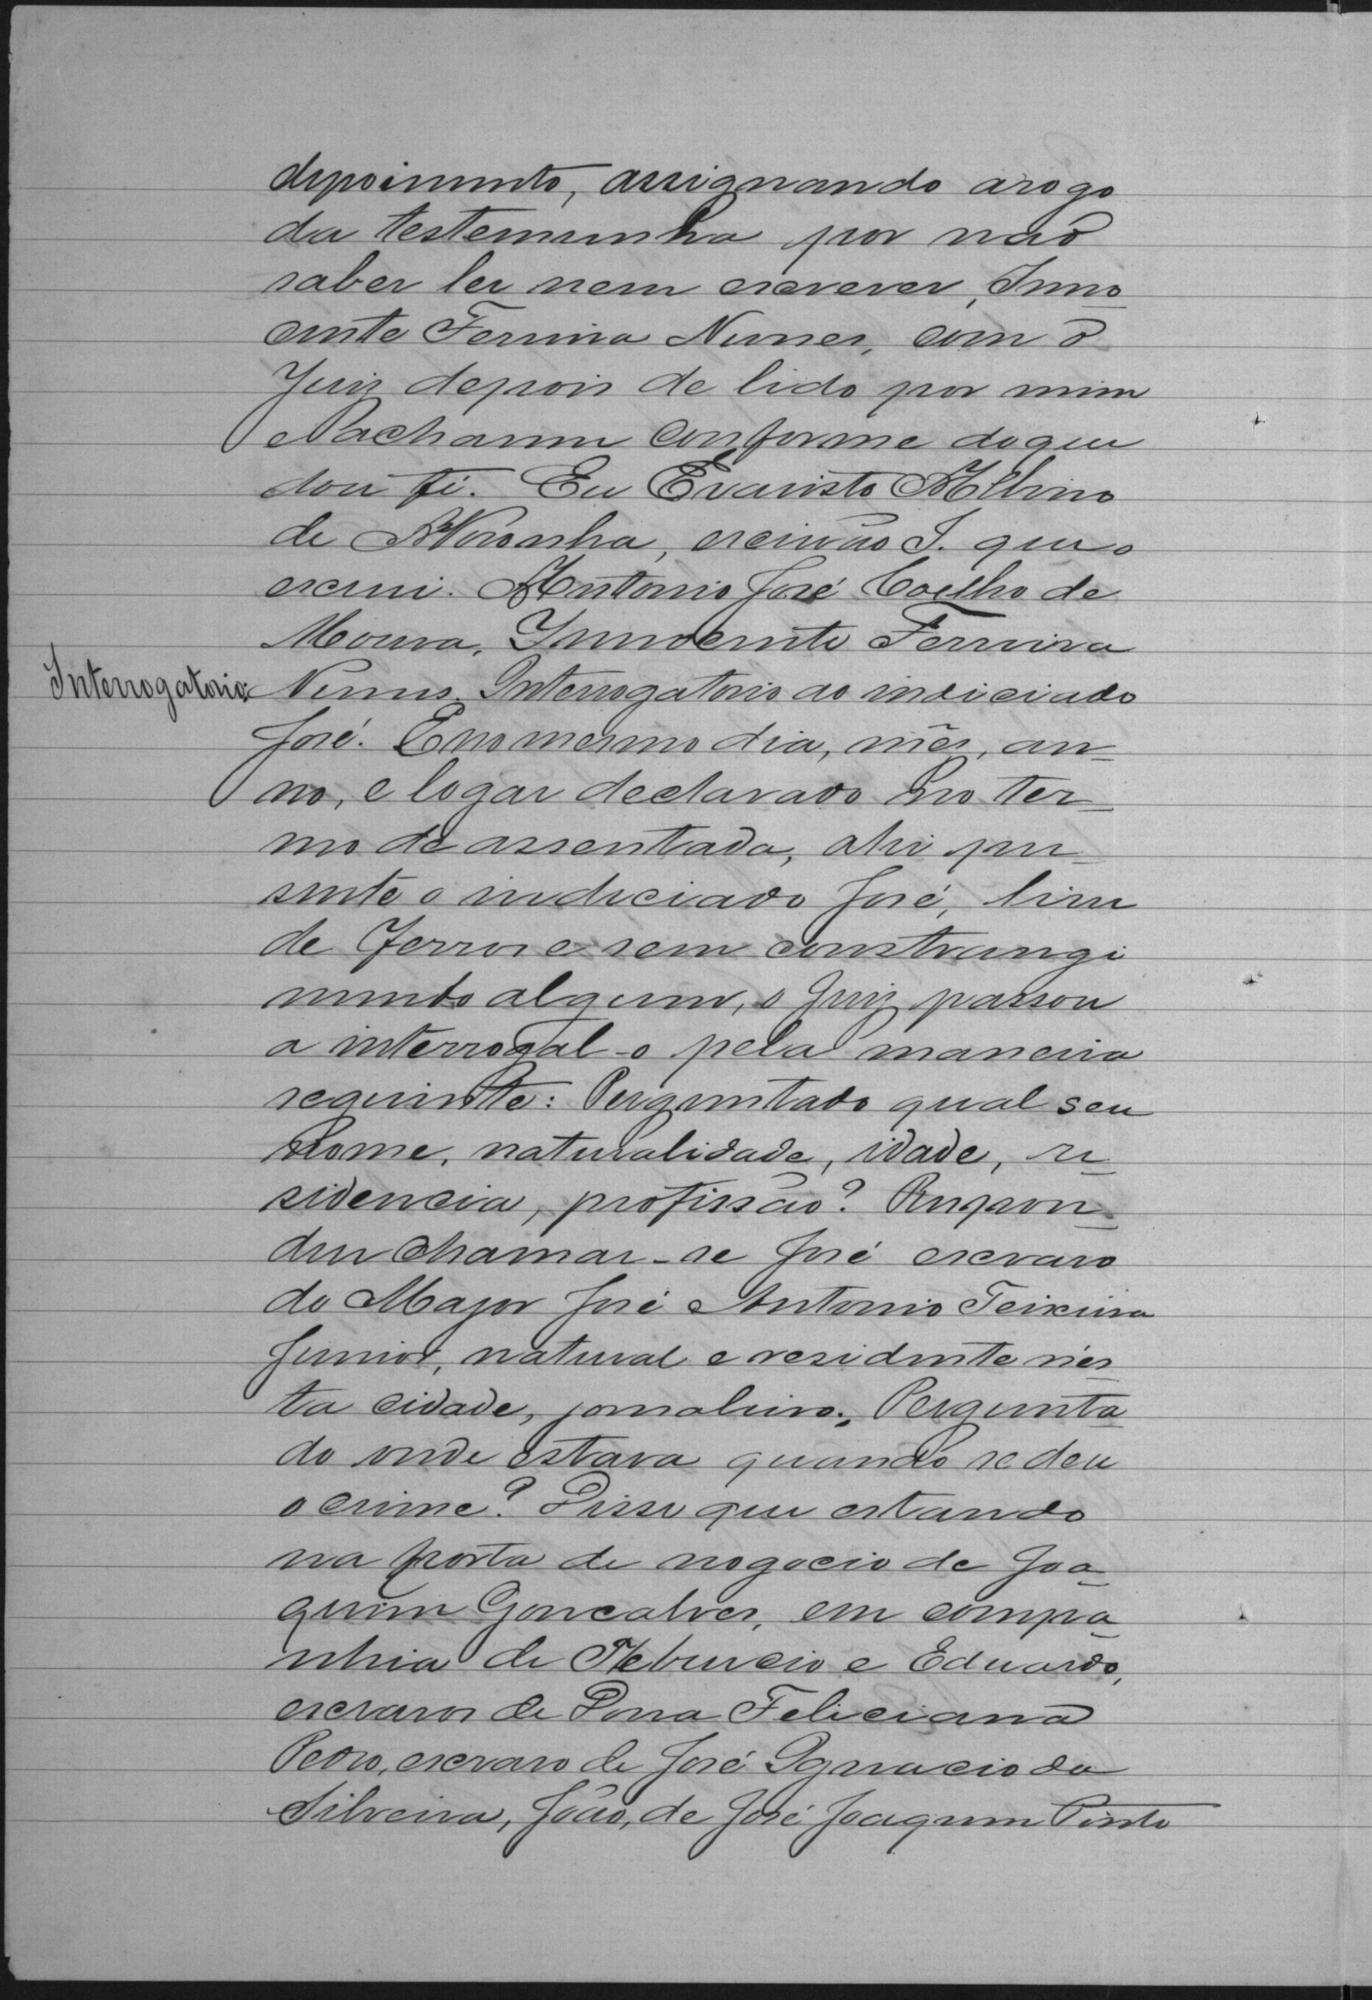 depoimento, assignando arogo
da testemunha por não
saber ler nem escrever, Inno_
cente Ferreira Nunes, com o
Juiz depois de lido por mim
e acharem conforme doque
dou fé. Eu Evaristo Albino
de Noronha, escrivão I. que o
escrevi. Antonio José Coelho de
Moura, Innocente Ferreira
Interrogatorio: Nunes. Interrogatorio ao indiciado
José. E no mesmo dia, mês, an_
no, e logar declarado no ter_
mo de assentada, ahi pre_
sente o indiciado José, livre
de ferros e sem constrangi
mento algum, o Juiz passou
a interrogal-o pela maneira
seguinte: Perguntado qual seu
nome, naturalidade, idade, re_
sidencia, profissão? Respon_
deu chamar-se José escravo
do Major José Antonio Teixeira
Junior, natural e residente n'es_
ta cidade, jornaleiro. Pergunta
do onde estava quando se deu
o crime? Disse que estando
na porta de nogocio de Joa_
quim Goncalves, em compa_
nhia de Teburcio e Eduardo,
escravos de Dona Feliciana
Pedro, escravo de José Ignacio da
Silveira, João, de José Joaquim Pinto